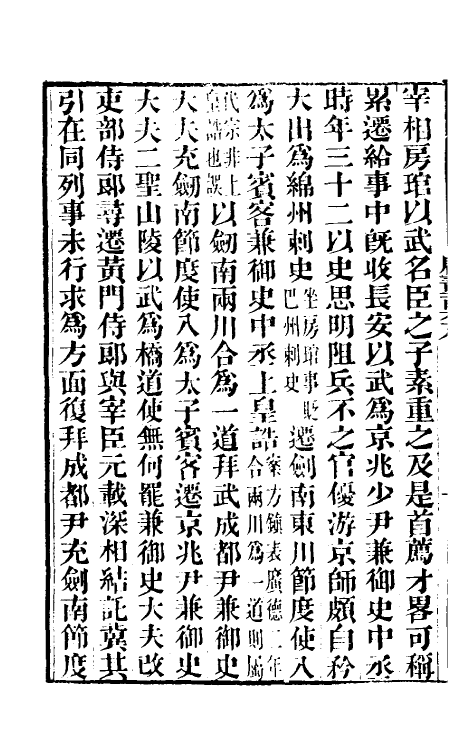 宰相房琯以武名臣之子素重之及是首薦才畧可稱
累遷給事中旣收長安以武爲京兆少尹兼御史中丞
時年三十二以史思明阻兵不之官優游京師頗自矜
大出爲綿州刺史坐房琯事貶巴州刺史遷劍南東川節度使入
爲太子賓客兼御史中丞上皇誥案方鎮表廣德二年合兩川爲一道則屬
代宗非上皇誥也誤以劒南兩川合爲一道拜武成都尹兼御史
大夫充劒南節度使入爲太子賓客遷京兆尹兼御史
大夫二聖山陵以武爲橋道使無何罷兼御史大夫改
吏部侍郎尋遷黃門侍郎與宰臣元載深相結託冀其
引在同列事未行求爲方面復拜成都尹充劍南節度